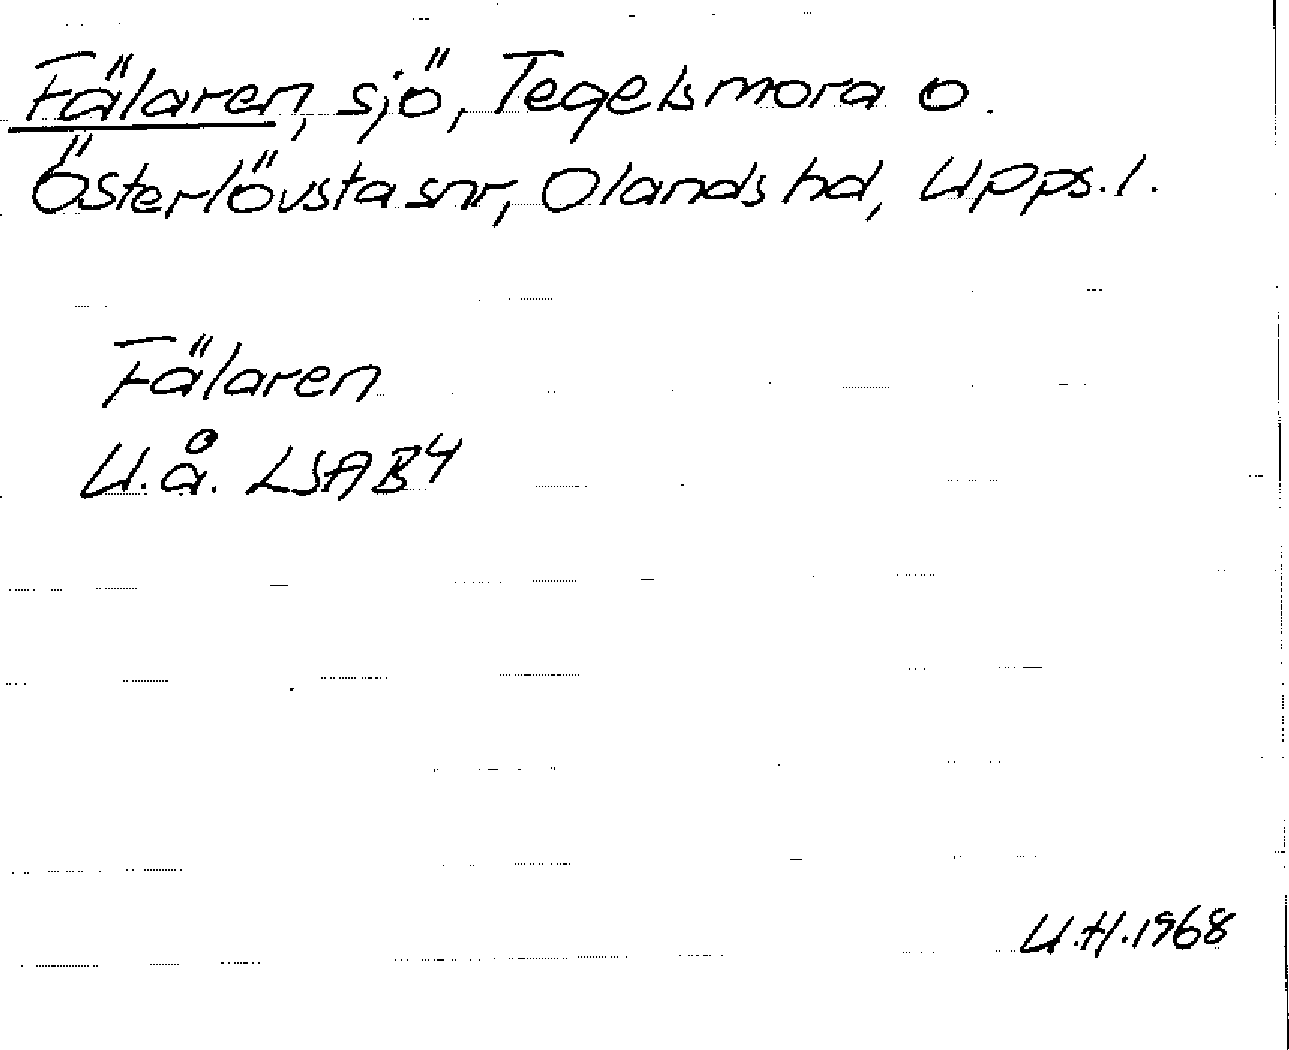 Fälaren, sjö, Tegelsmora o.
Österlövsta snr, Olands hd, Upps.l.
Fälaren
U.å. LSA B4
U.H.1968